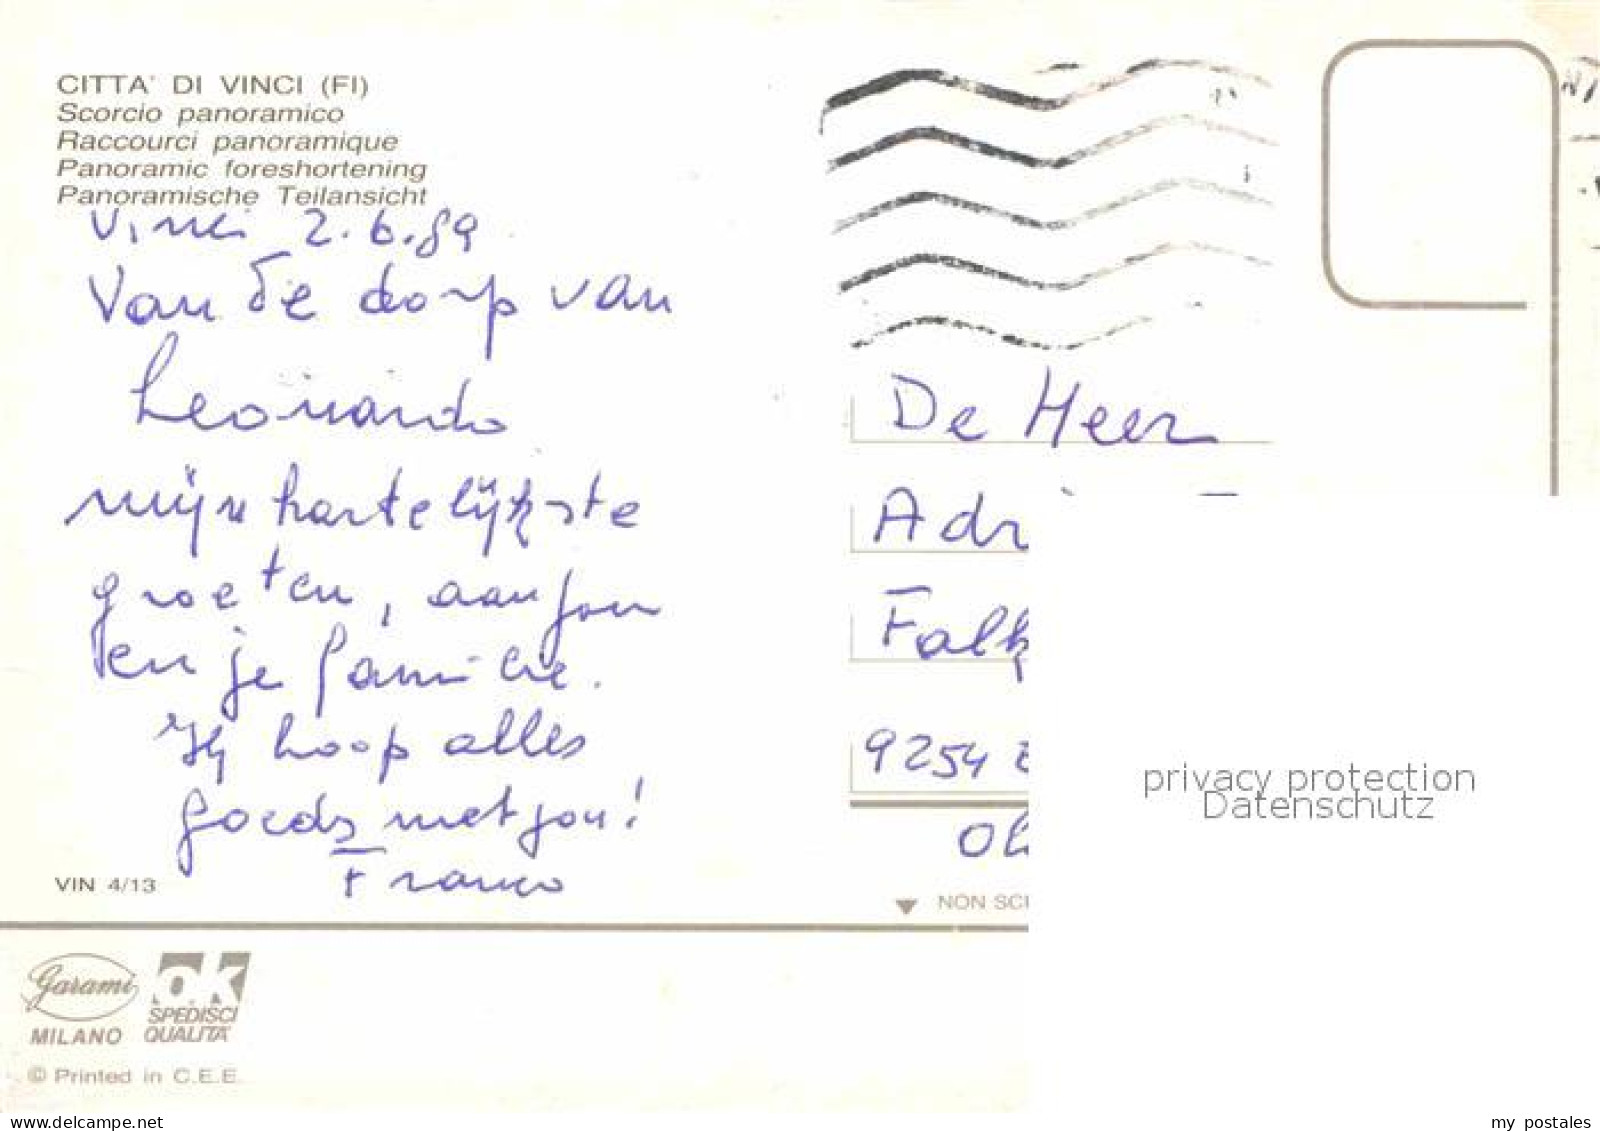 CITTA' DI VINCI (FI)
Scorcio panoramico
Raccourci panoramique
Panoramic foreshortening
Panoramische Teilansicht
Vinci 2.6.89
Van de dorp van
Leonardo
mijn hartelijkste
groeten, aan jou
en je familie.
Ik hoop alles
goeds met jou!
Franco
VIN 4/13
De Heer
Adr
Falk
9254
Ol
NON SCR
privacy protection
Datenschutz
Garami
MILANO
OK
SPEDISCI
QUALITA'
© Printed in C.E.E.
www.delcampe.net
my postales